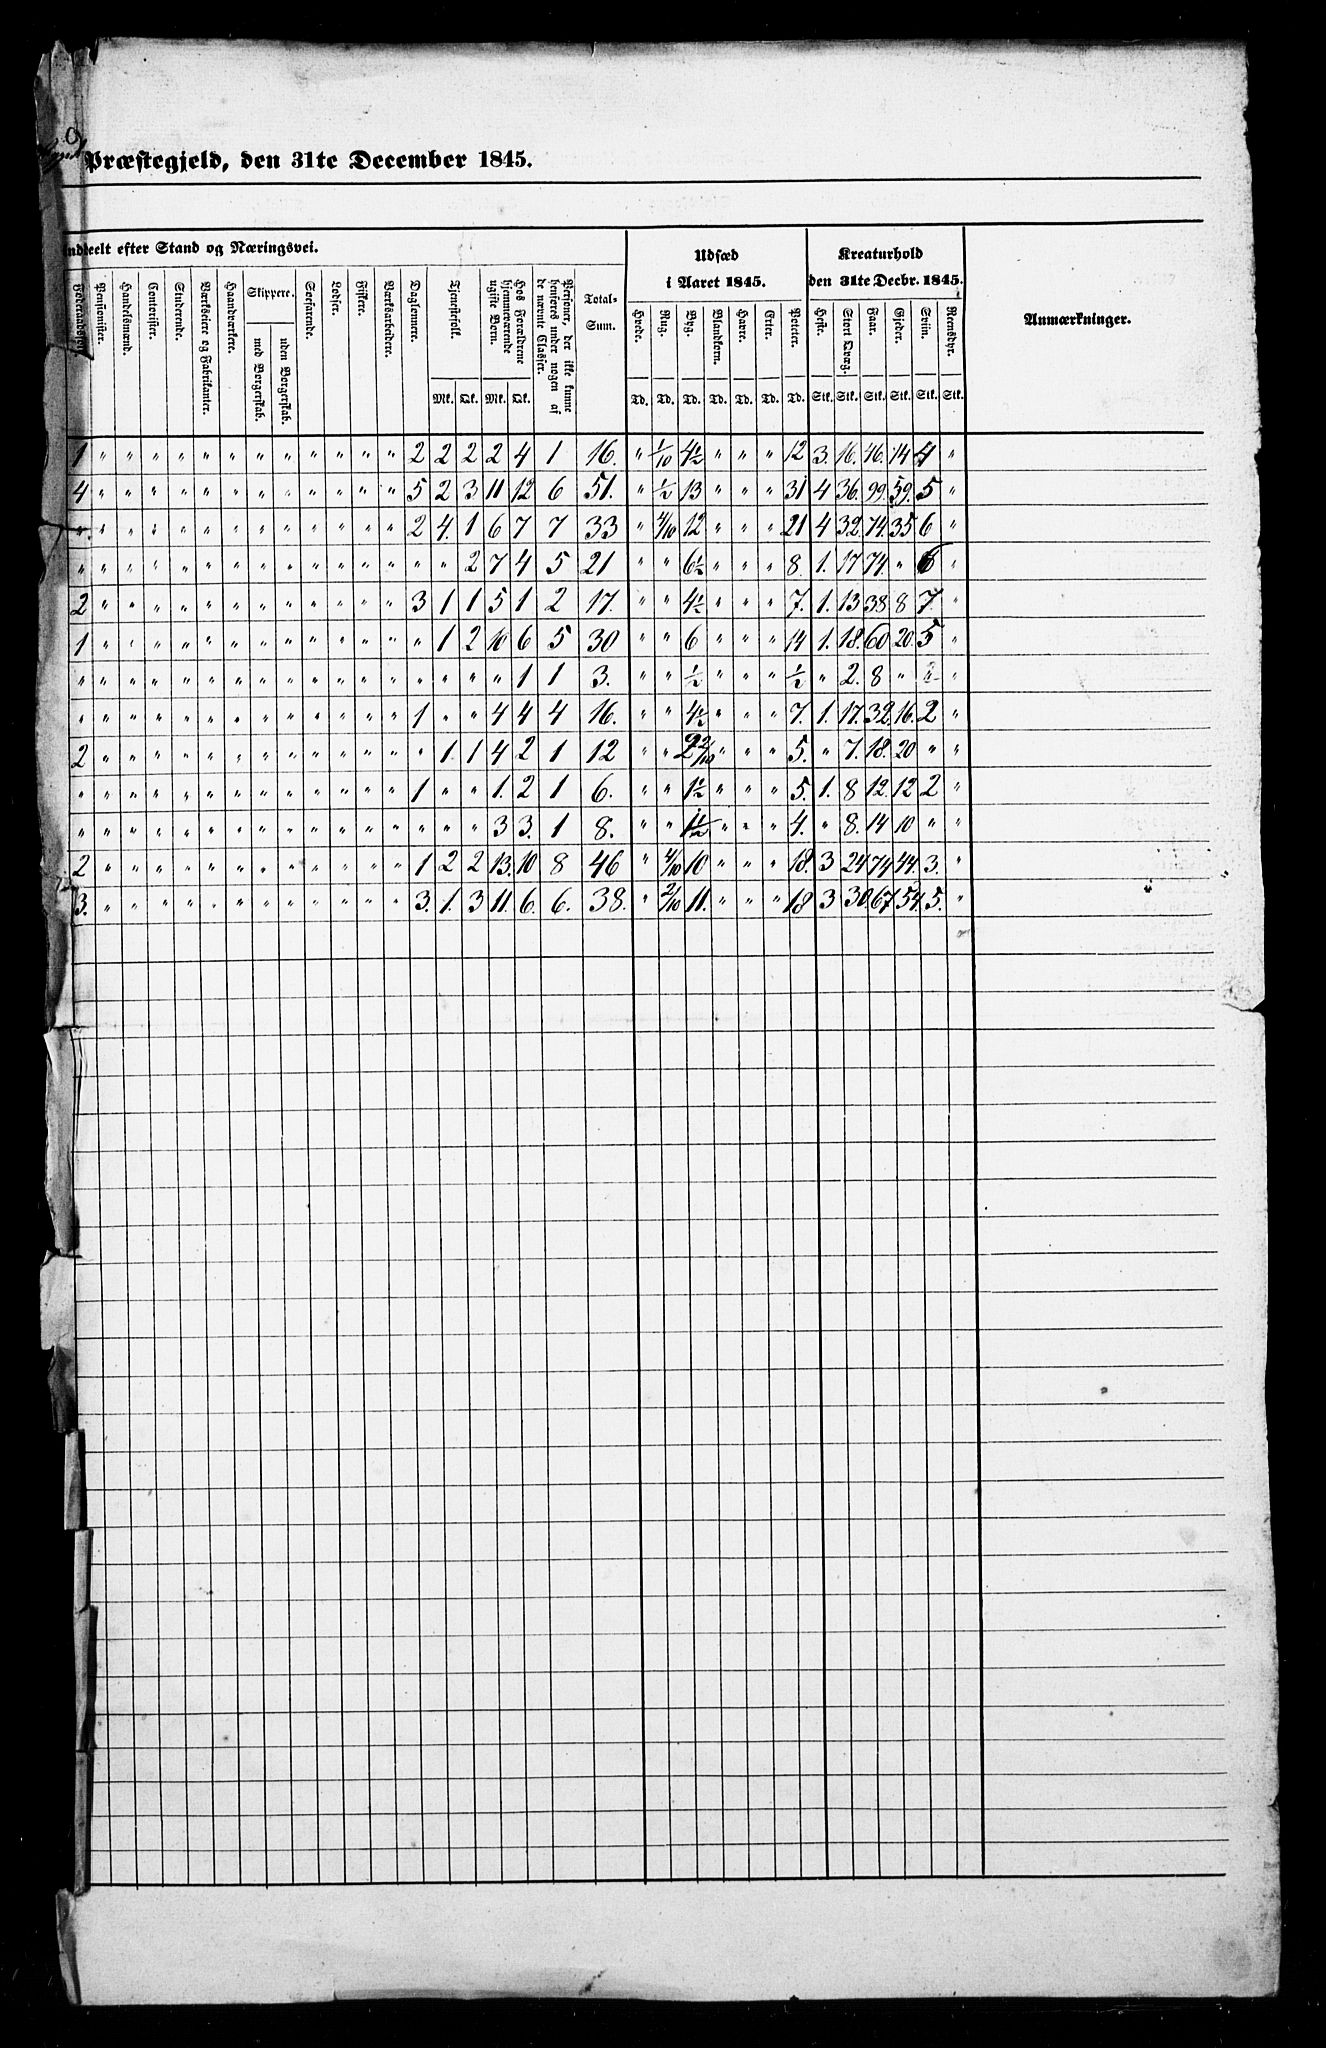 Præstegjeld, den 31te December 1845.
Inddeelt efter Stand og Næringsvei.
Udsæd
i Aaret 1845.
Kreaturhold
den 31te Decbr. 1845.
Anmærkninger.
Føderaadsfolk. Pensionister. Handelsmænd. Contorister. Studerende. Værkseiere og Fabrikanter. Haandværkere. Skippere. med Borgerskab. uden Borgerskab. Søefarende. Lodser. Fiskere. Værksarbeidere. Daglønnere. Tjenestefolk. Hos Forældrene hjemmeværende ugifte Børn. Personer, der ikke kunne henføres under nogen af de nævnte Classer. Total-Sum. Hvede. Rug. Byg. Blandkorn. Havre. Erter. Poteter. Heste. Stort Qvæg. Faar. Gjeder. Sviin. Rensdyr.
Mk. Qk. Mk. Qk. Td. Td. Td. Td. Td. Td. Td. Stk. Stk. Stk. Stk. Stk. Stk.
1 " " " " " " " " " " " " " 2 2 2 2 4 1 16. " 1/10 4½ " " " 12 3. 16. 46. 14 4 "
4 " " " " " " " " " " " " " 5 2 3 11 12 6 51. " ½ 13 " " " 31 4 36. 99. 59. 5 "
" " " " " " " " " " " " " " 2 4. 1 6 7 7 33 " 4/10 12 " " " 21 4 32. 74. 35 6 "
" " " " " " " " " " " " " " " " 2 7 4 5 21 " " 6½ " " " 8. 1. 17 74. " 6 "
2 " " " " " " " " " " " " " 3 1 1 5 1 2 17. " " 4½ " " " 7. 1. 13 38 8 7. "
1 " " " " " " " " " " " " " " 1 2 10 6 5 30 " " 6 " " " 14 1. 18. 60 20. 5 "
" " " " " " " " " " " " " " " " " " 1 1 3. " " ½ " " " ½ " 2. 8 " "
" " " " " " " " " " " " " " 1 " " 4 4 4 16. " " 4½ " " " 7. 1. 17. 32. 16. 2 "
2 " " " " " " " " " " " " " " 1 1 4 2 1 12 " " 2 2/10 " " " 5. " 7. 18. 20 " "
" " " " " " " " " " " " " " 1 " " 1. 2 1 6. " " 1½ " " " 5. 1. 8 12. 12 2 "
" " " " " " " " " " " " " " " " " 3 3. 1 8. " " 1½ " " " 4. " 8. 14 10 " "
2 " " " " " " " " " " " " " 1 2 2 13. 10 8 46 " 4/10 10 " " " 18. 3 24 74 44. 3. "
3. " " " " " " " " " " " " " 3. 1. 3 11. 6. 6. 38. " 2/10 11. " " " 18 3 30. 67 54. 5. "